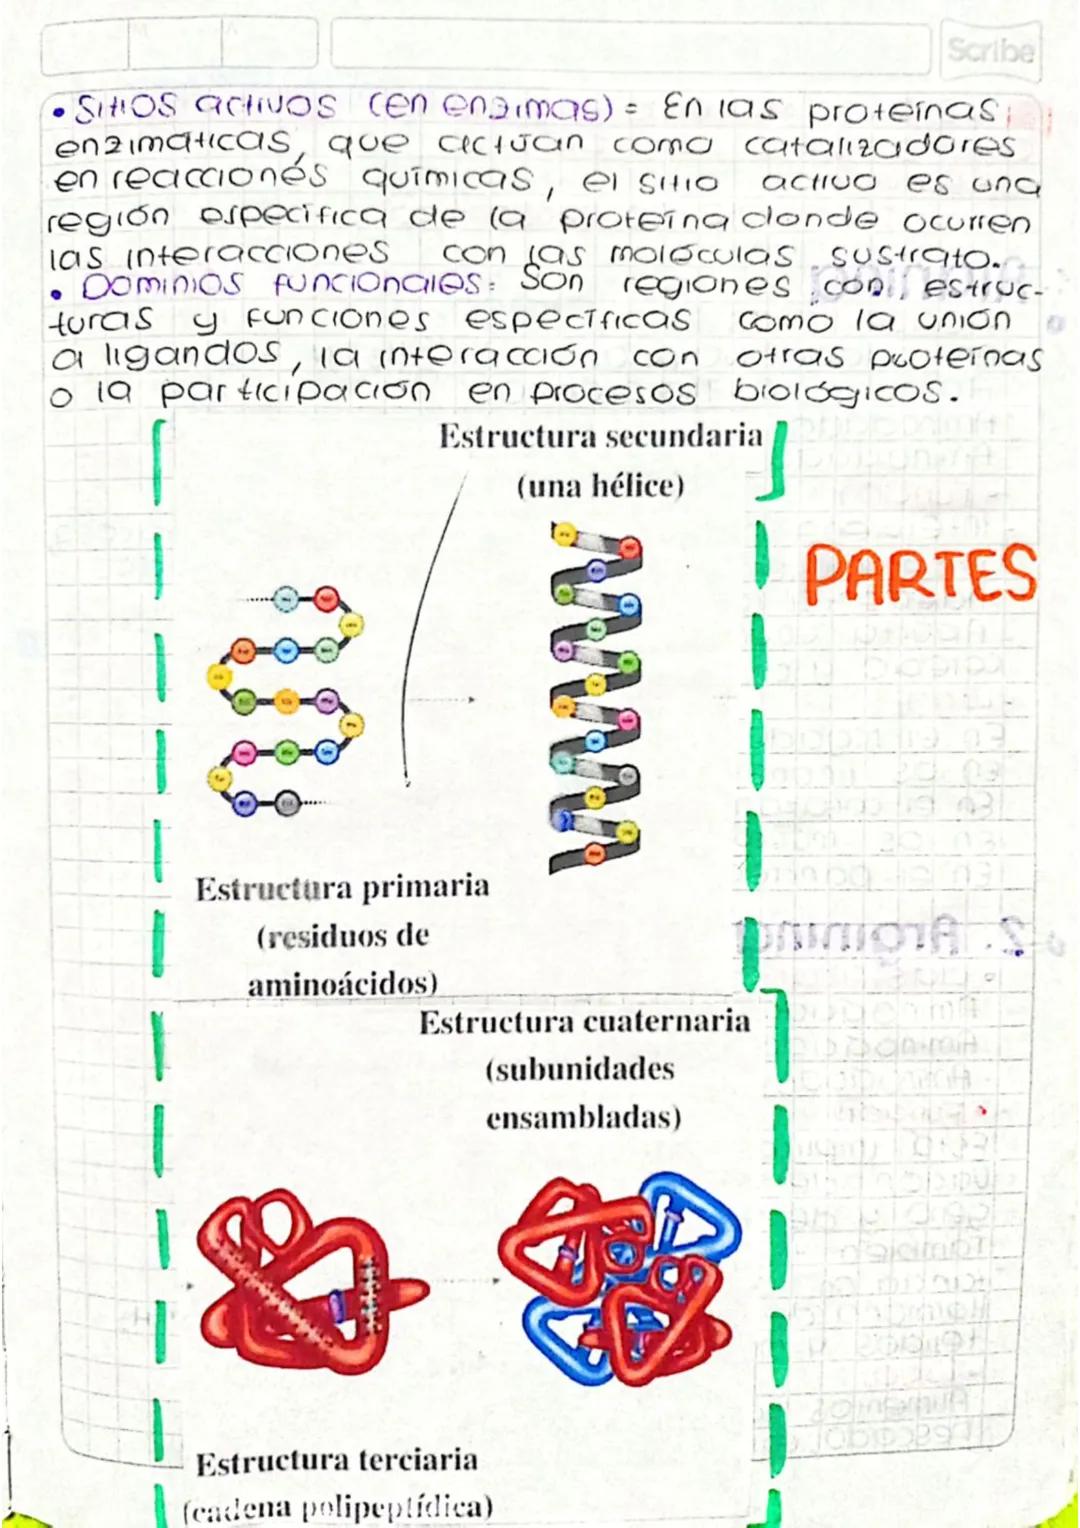 Scribe
• Sitios activos (en enzimas) = En las proteínas
enzimáticas, que actúan como catalizadores
en reacciones químicas, el sitio activo es una
región específica de la proteína donde ocurren
las interacciones con las moléculas sustrato.
• Dominios funcionales: Son regiones con estruc-
turas y funciones específicas como la unión
a ligandos, la interacción con otras proteínas
o la participación en procesos biológicos.
Estructura secundaria
(una hélice)
PARTES
Estructura primaria
(residuos de
aminoácidos)
Estructura cuaternaria
(subunidades
ensambladas)
Estructura terciaria
(cadena polipeptídica)